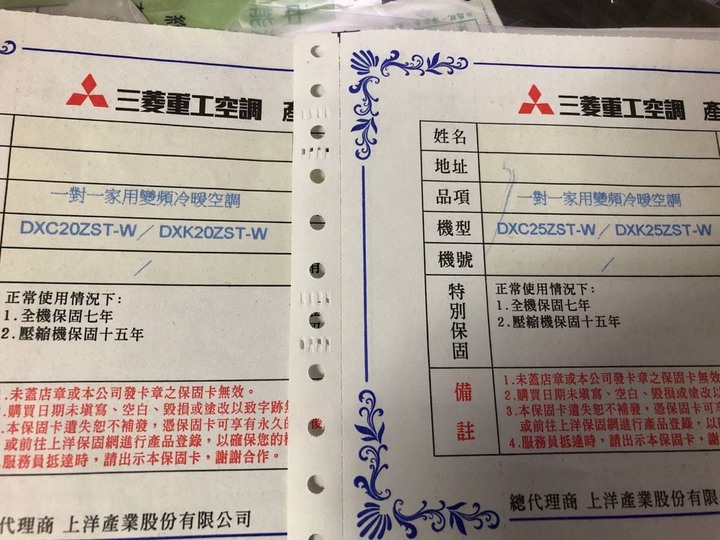 三菱重工空調 產
一對一家用變頻冷暖空調
DXC20ZST-W／DXK20ZST-W
／
正常使用情況下:
1.全機保固七年
2.壓縮機保固十五年
1.未蓋店章或本公司發卡章之保固卡無效。
2.購買日期未填寫、空白、毀損或塗改以致字跡
3.本保固卡遺失恕不補發，憑保固卡可享有永久
或前往上洋保固網進行產品登錄，以確保您的
4.服務員抵達時，請出示本保固卡，謝謝合作。
代理商 上洋產業股份有限公司
月
三菱重工空調 產
姓名
地址
品項 一對一家用變頻冷暖空調
機型 DXC25ZST-W／DXK25ZST-W
機號 ／
特別保固
正常使用情況下:
1.全機保固七年
2.壓縮機保固十五年
備註
1.未蓋店章或本公司發卡章之保固卡無效
2.購買日期未填寫、空白、毀損或塗改以
3.本保固卡遺失恕不補發，憑保固卡可享
或前往上洋保固網進行產品登錄，以
4.服務員抵達時，請出示本保固卡，謝
總代理商 上洋產業股份有限公